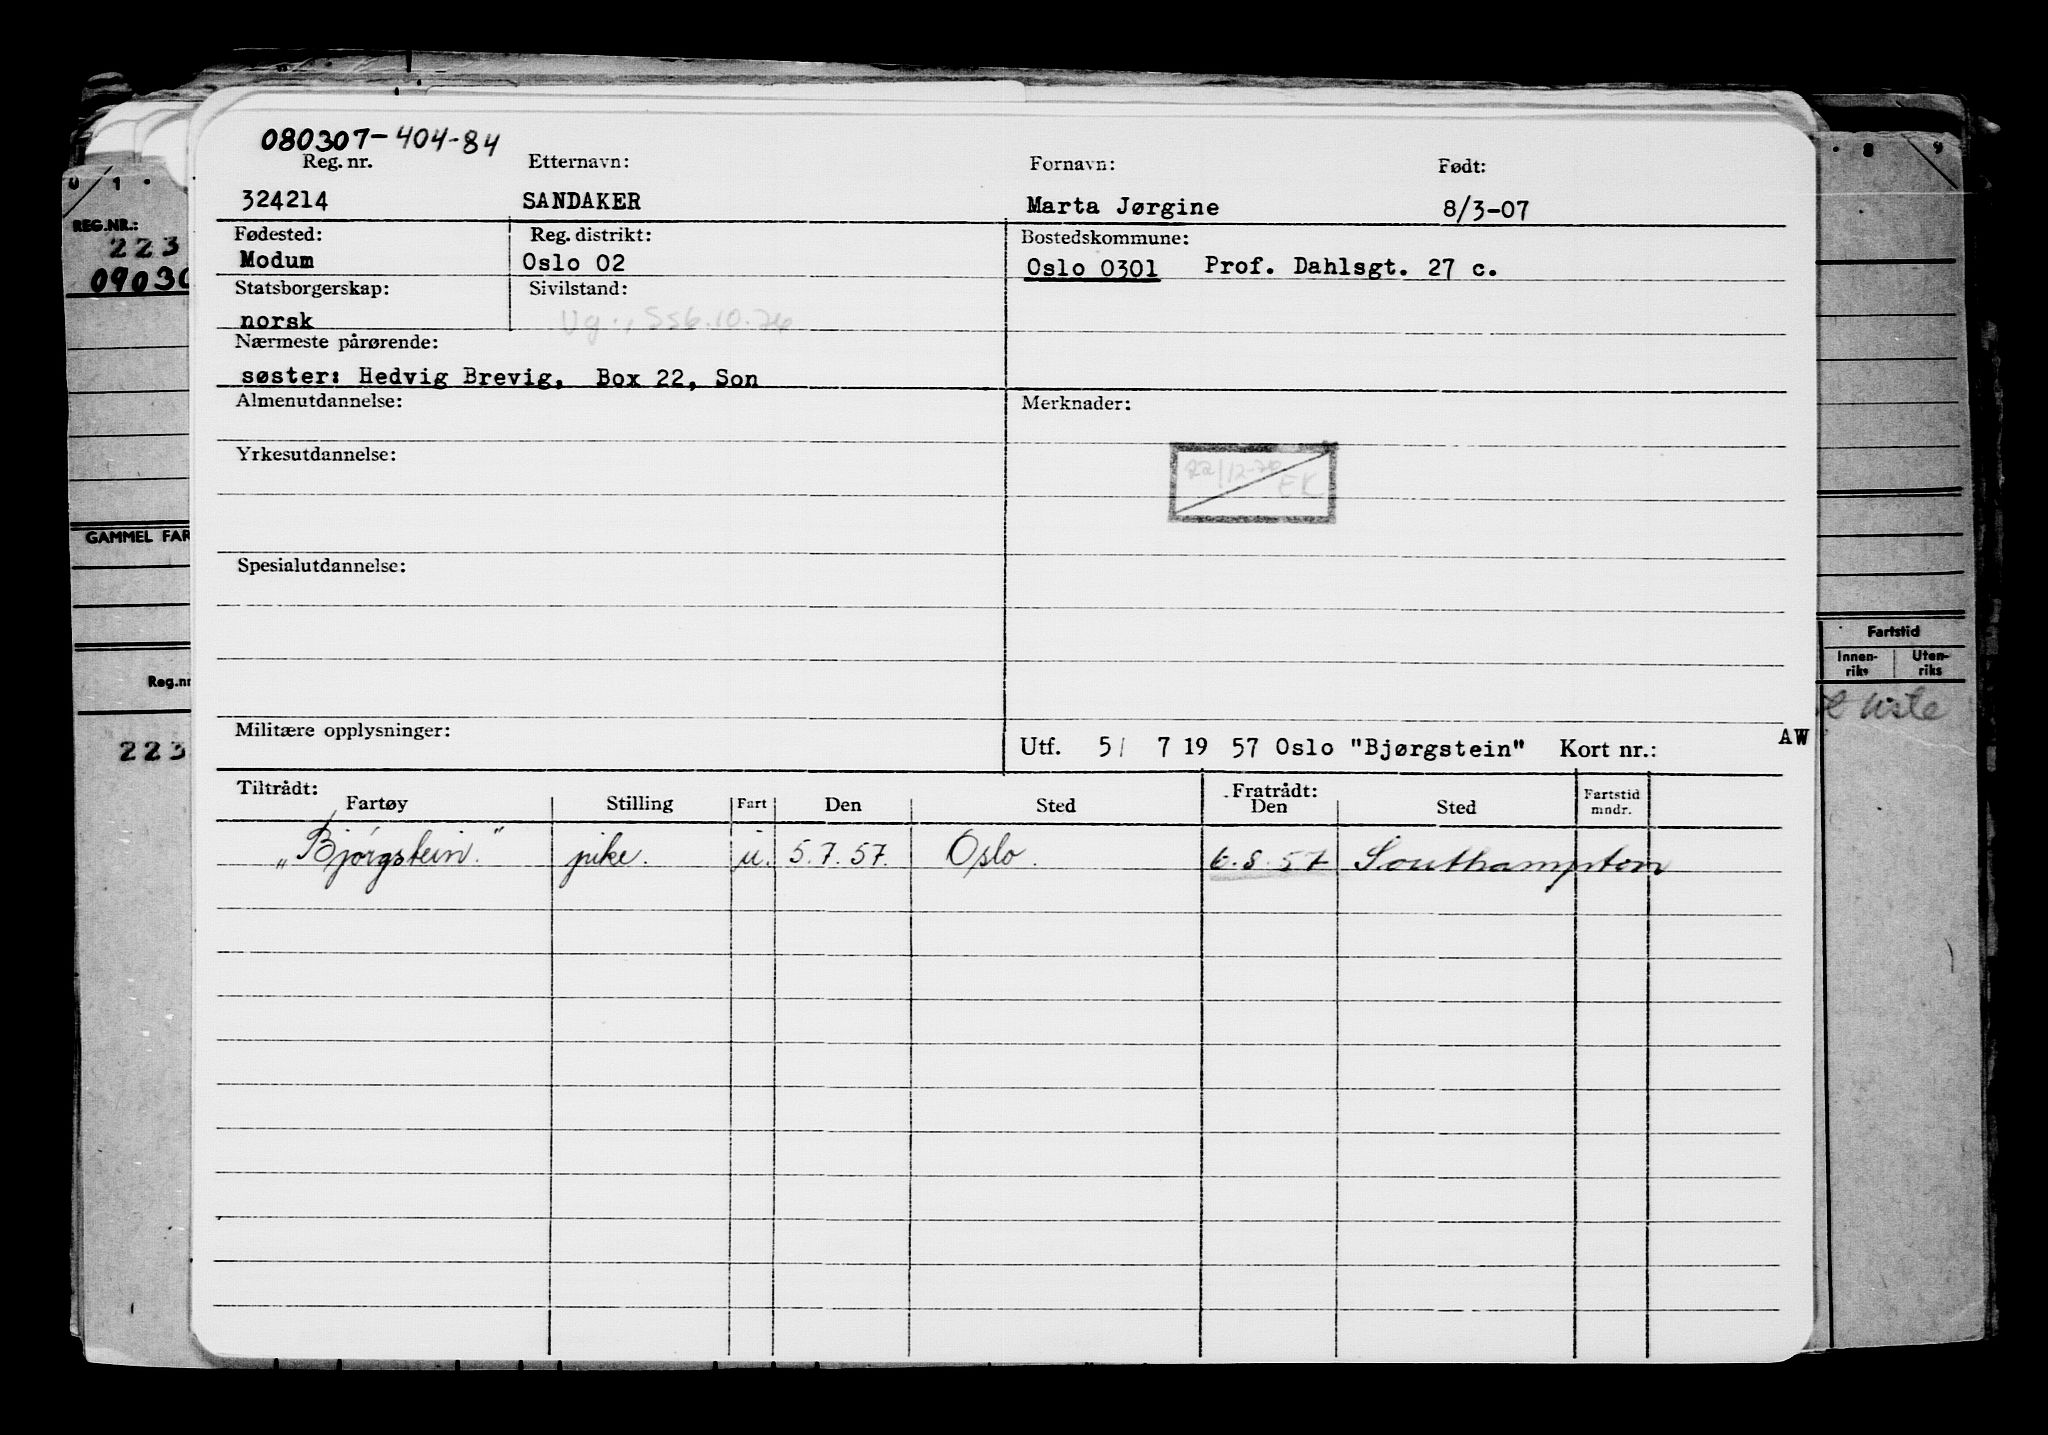 080307-404-84
Reg. nr. Etternavn: Fornavn: Født:
324214 SANDAKER Marta Jørgine 8/3-07
Fødested: Reg. distrikt: Bostedskommune:
Modum Oslo 02 Oslo 0301 Prof. Dahlsgt. 27 c.
Statsborgerskap: Sivilstand:
norsk Ug.,
Nærmeste pårørende:
søster: Hedvig Brevig, Box 22, Son
Almenutdannelse: Merknader:
Yrkesutdannelse:
EK
Spesialutdannelse:
Militære opplysninger:
Utf. 5/ 7 19 57 Oslo "Bjørgstein" Kort nr.: AW
Tiltrådt: Fratrådt:
Fartøy Stilling Fart Den Sted Den Sted Fartstid
mndr.
„Bjørgstein." pike. u. 5.7.57. Oslo. 6.8.57 Southampton
0 1 .
REG.NR.:
223
09030
GAMMEL FAR
Reg.nr
223
. 8 9
Fartstid
Innen-
riks
Uten-
riks
liste